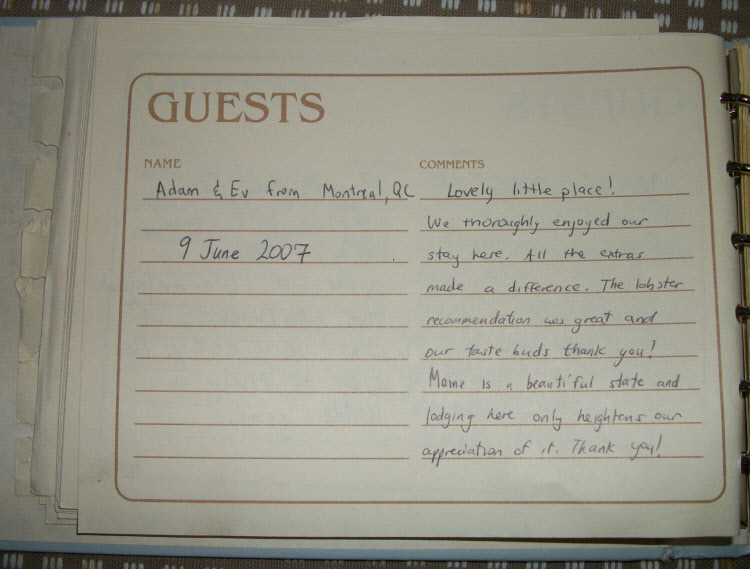 GUESTS
NAME
COMMENTS
Adam & Ev from Montreal, QC
9 June 2007
Lovely little place!
We thoroughly enjoyed our
stay here. All the extras
made a difference. The lobster
recommendation was great and
our taste buds thank you!
Maine is a beautiful state and
lodging here only heightens our
appreciation of it. Thank you!